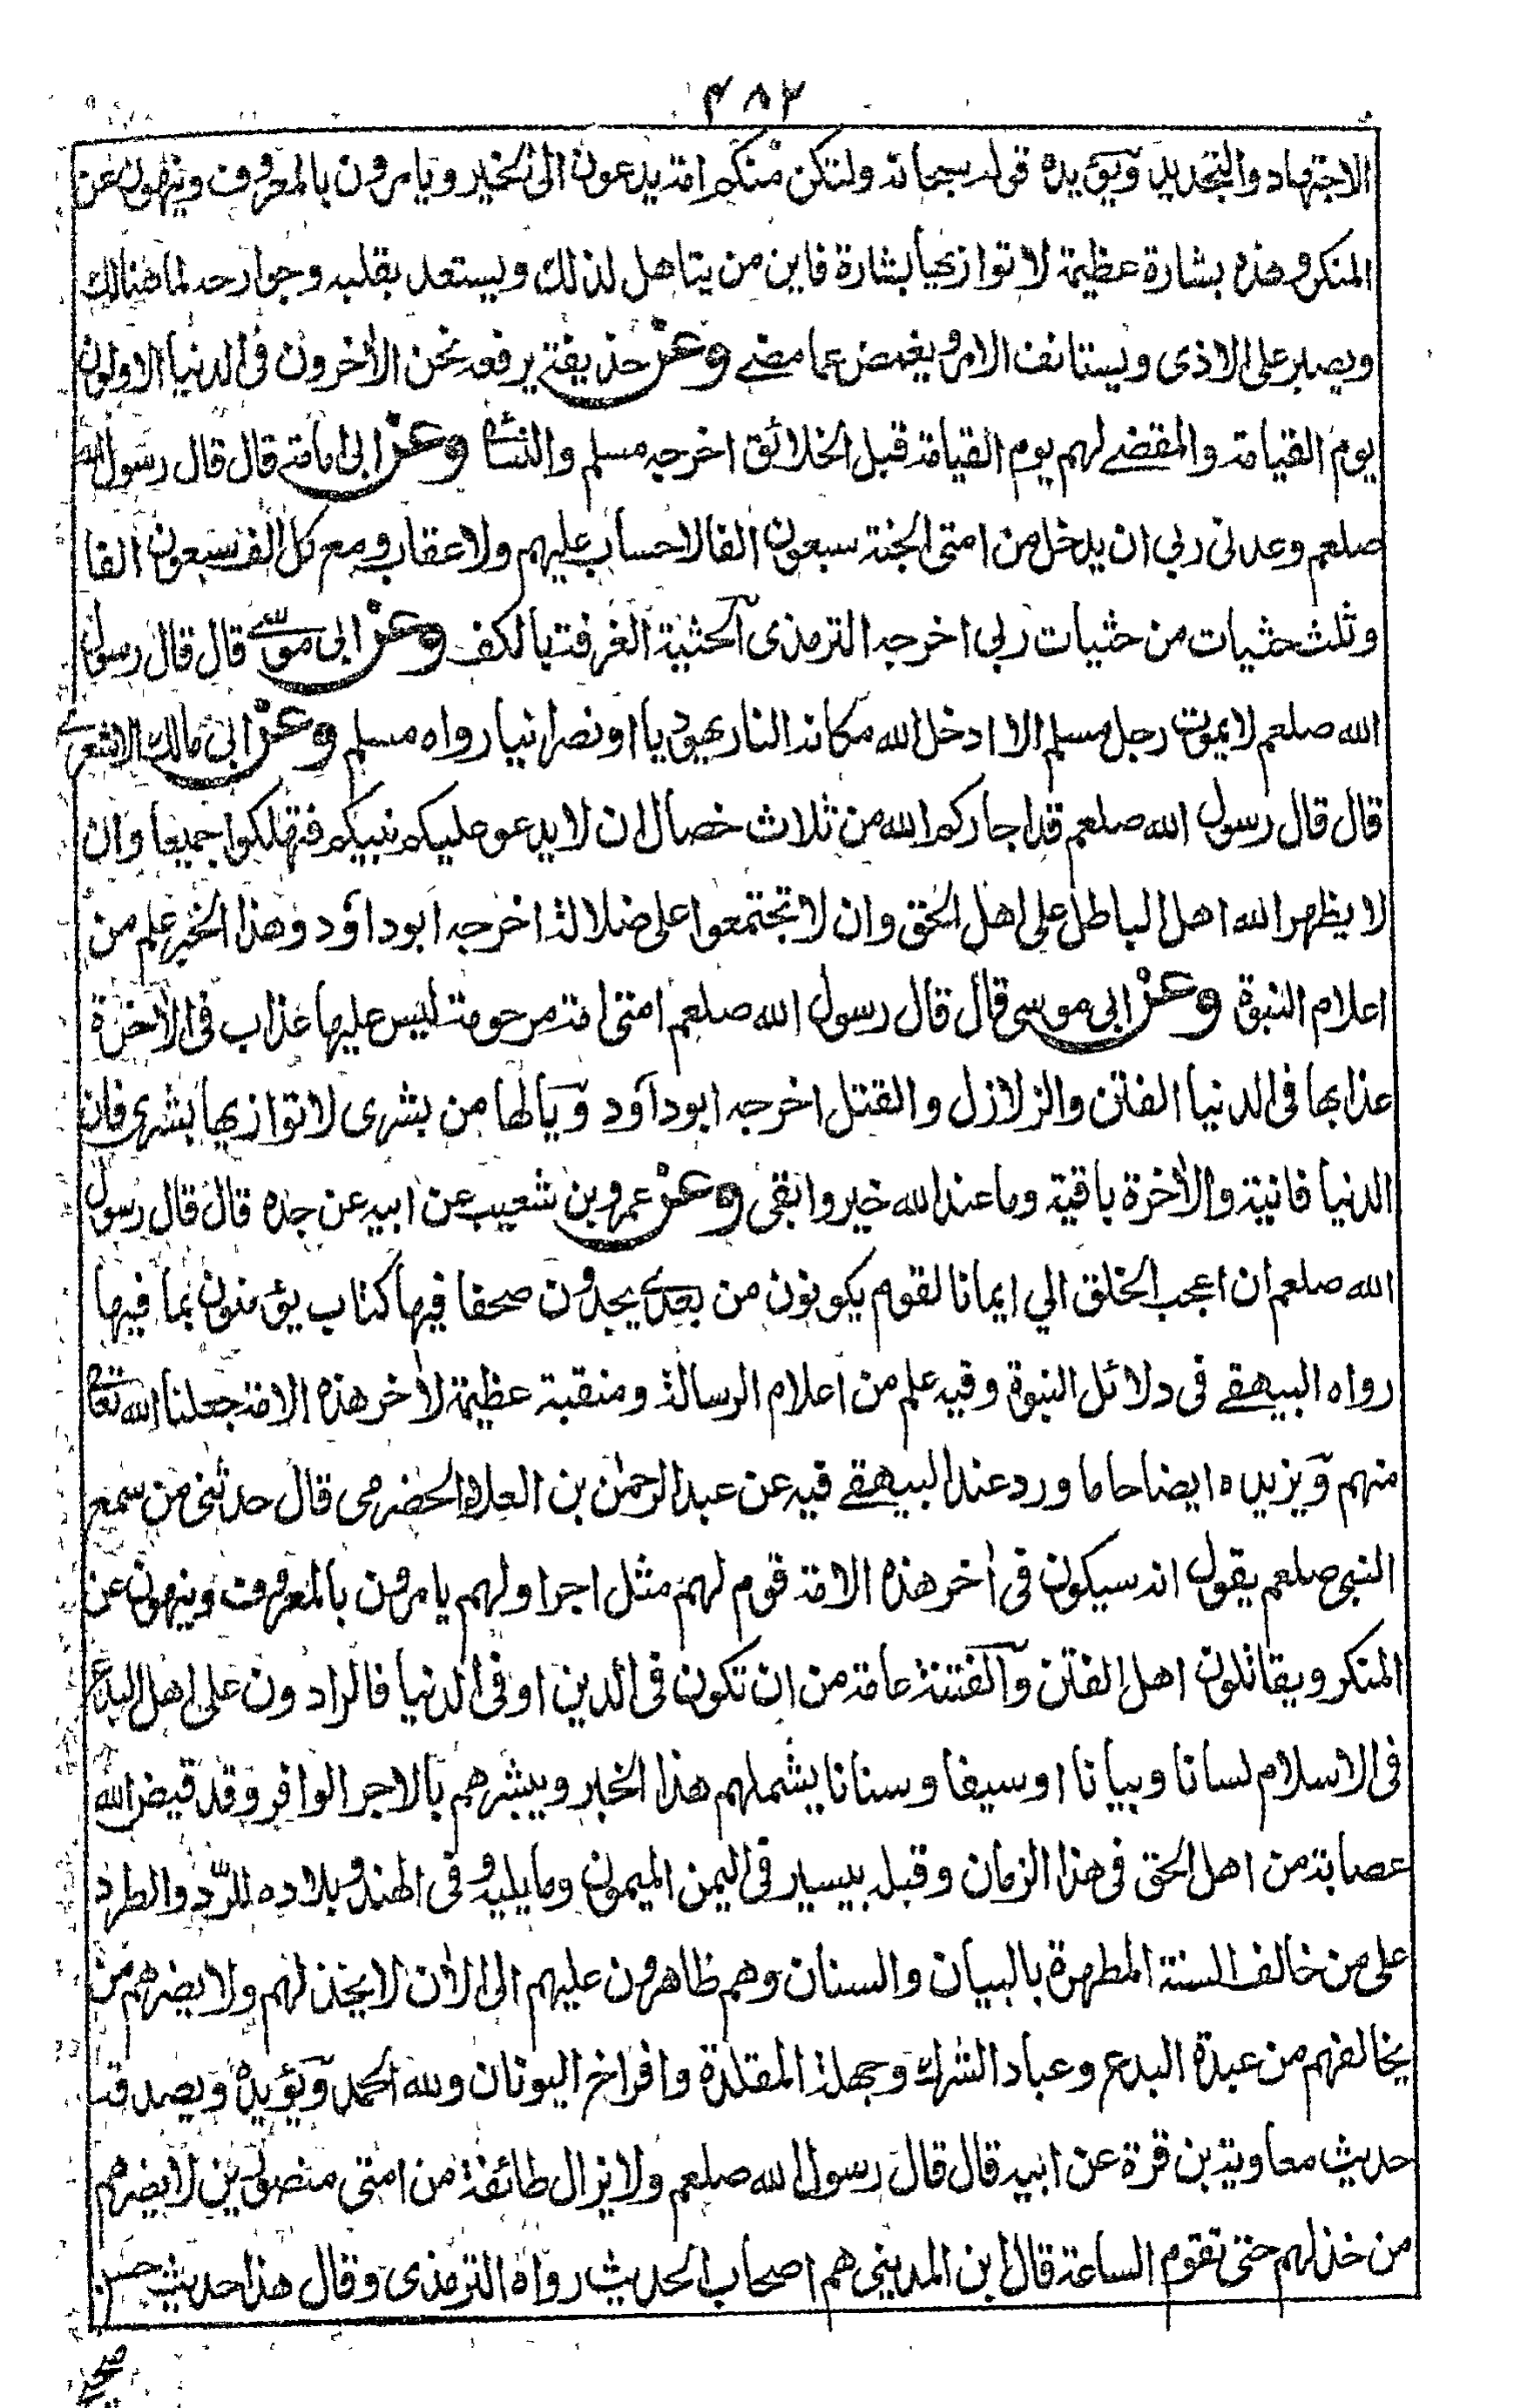 ٤٨٢
الاجتهاد والتجديد ويؤيده قوله سبحانه ولتكن منكم امة يدعون الى الخير ويامرون بالمعروف وينهون عن
المنكر وهذه بشارة عظيمة لا توازيها بشارة فاين من يتاهل لذلك ويستعد بقلبه وجوارحه لما هنالك
ويصبر على الاذى ويستانف الامر ويغمض عما مضى وعن حذيفة يرفعه نحن الاٰخرون فى الدنيا الاولون
يوم القيامة والمقضى لهم يوم القيامة قبل الخلائق اخرجه مسلم والنسائى وعن ابى امامة قال قال رسول الله
صلعم وعدنى ربى ان يدخل من امتى الجنة سبعون الفا لا حساب عليهم ولا عقاب ومع كل الف سبعون الفا
وثلث حثيات من حثيات ربى اخرجه الترمذى الحثية الغرفة بالكف وعن ابى موسى قال قال رسول
الله صلعم لا يموت رجل مسلم الا ادخل الله مكانه النار يهوديا او نصرانيا رواه مسلم وعن ابى مالك الاشعرى
قال قال رسول الله صلعم قد اجاركم الله من ثلاث خصال ان لا يدعو عليكم نبيكم فتهلكوا جميعا وان
لا يظهر الله اهل الباطل على اهل الحق وان لا تجتمعوا على ضلالة اخرجه ابو داؤد وهذا الخبر علم من
اعلام النبوة وعن ابى موسى قال قال رسول الله صلعم امتى امة مرحومة ليس عليها عذاب فى الاٰخرة
عذابها فى الدنيا الفتن والزلازل والقتل اخرجه ابو داؤد ويا لها من بشرى لا توازيها بشرى فان
الدنيا فانية والاٰخرة باقية وما عند الله خير وابقى وعن عمرو بن شعيب عن ابيه عن جده قال قال رسول
الله صلعم ان اعجب الخلق الي ايمانا لقوم يكونون من بعدى يجدون صحفا فيها كتاب يؤمنون بما فيها
رواه البيهقى فى دلائل النبوة وفيه علم من اعلام الرسالة ومنقبة عظيمة لاٰخر هذه الامة جعلنا الله تعالى
منهم ويزيده ايضاحا ما ورد عند البيهقى فيه عن عبد الرحمٰن بن العلاء الحضرمى قال حدثنى من سمع
النبى صلعم يقول انه سيكون فى اٰخر هذه الامة قوم لهم مثل اجر اولهم يامرون بالمعروف وينهون عن
المنكر ويقاتلون اهل الفتن والفتنة عامة من ان تكون فى الدين او فى الدنيا فالرادون على اهل البدع
فى الاسلام لسانا وبيانا او سيفا وسنانا يشملهم هذا الخبر ويبشرهم بالاجر الوافر وقد قيض الله
عصابة من اهل الحق فى هذا الزمان وقبله بيسير فى اليمن الميمون وما يليه وفى الهند وبلاده للرّد والطرد
على من خالف السنة المطهرة بالبيان والسنان وهم ظاهرون عليهم الى الاٰن لا يخذلهم ولا يضرهم من
يخالفهم من عبدة البدع وعباد الشرك وجهلة المقلدة وافراخ اليونان ولله الحمد ويؤيده ويصدقه
حديث معاوية بن قرة عن ابيه قال قال رسول الله صلعم ولا يزال طائفة من امتى منصورين لا يضرهم
من خذلهم حتى تقوم الساعة قال ابن المدينى هم اصحاب الحديث رواه الترمذى وقال هذا حديث حسن
صحيح